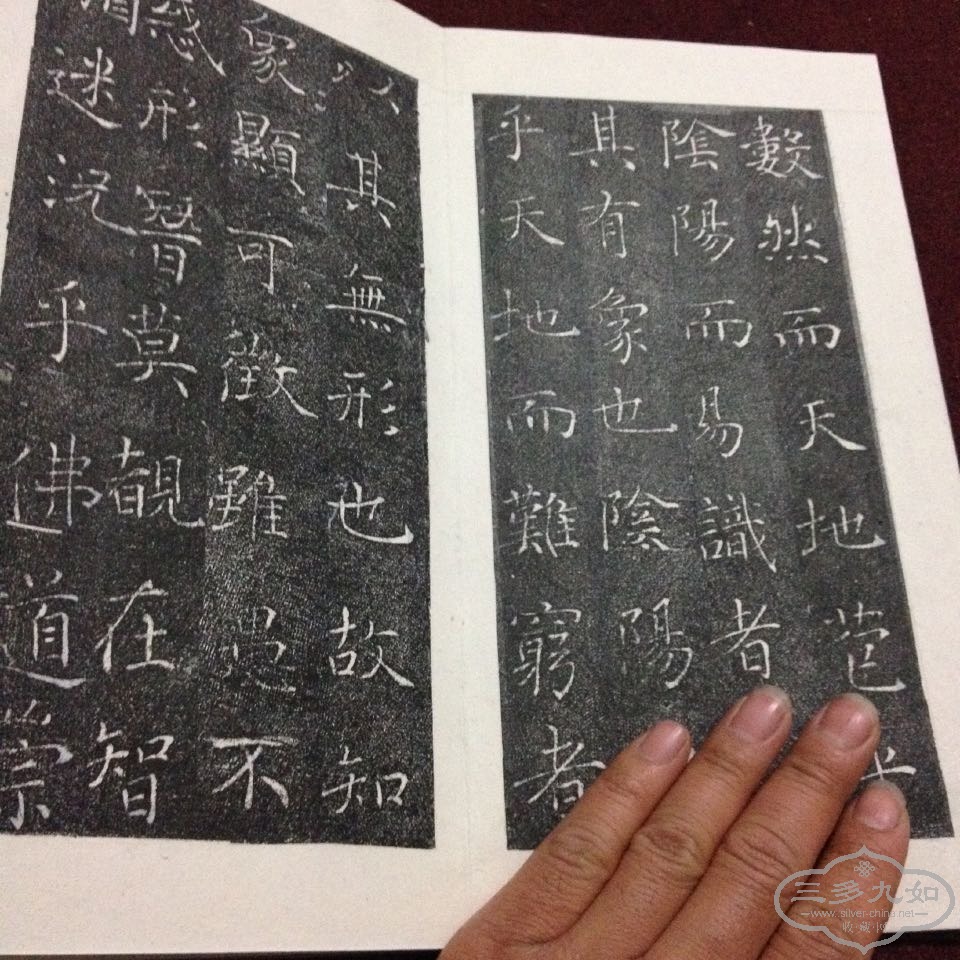 數然而天地苞乎
陰陽而易識者
其有象也陰陽
乎天地而難窮者
以其無形也故知
象顯可徵雖愚不
惑形潛莫覩在智
猶迷況乎佛道崇
三多九如
www.silver-china.net
收藏